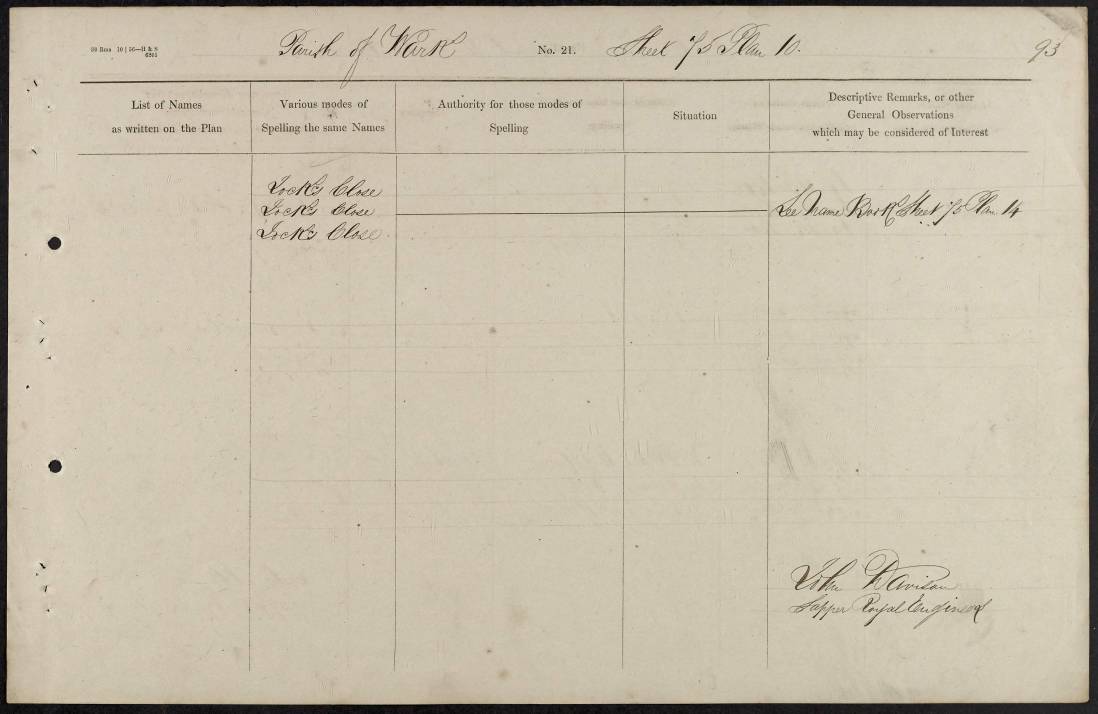 Parish of Wark No. 21. Sheet 75 Plan 10. 93
List of Names
as written on the Plan
Various modes of
Spelling the same Names
Authority for those modes of
Spelling
Situation
Descriptive Remarks, or other
General Observations
which may be considered of Interest
Lock's Close
Lock's Close
Lock's Close
See Name Book Sheet 75 Plan 14
John Davison
Sapper Royal Engineer